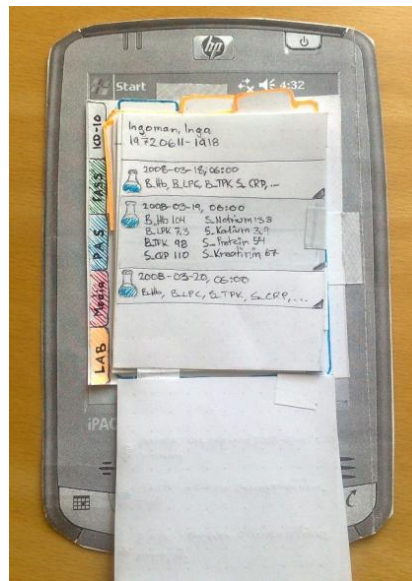 hp
Start 4:32
ICD-10
FASS
PAS
Media
LAB
Ingoman, Inga
19720611-1918
2008-03-18, 06:00
B_Hb, B_LPC, B_TPK S_CRP, ...
2008-03-19, 06:00
B_Hb 104 S_Natrium 138
B_LPK 7,3 S_Kalium 3,9
B_TPK 98 S_Protein 54
S_CRP 110 S_Kreatinin 67
2008-03-20, 06:00
B_Hb, B_LPC, S_TPK, S_CRP, ...
iPAQ